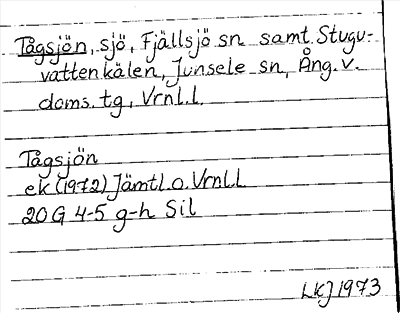 Tågsjön, sjö, Fjällsjö sn samt Stugu-
vattenkälen, Junsele sn, Ång. v.
doms. tg, Vrnl.l.
Tågsjön
ek (1972) Jämtl. o. Vrnl.l
20 G 4-5 g-h Sil
LKJ 1973